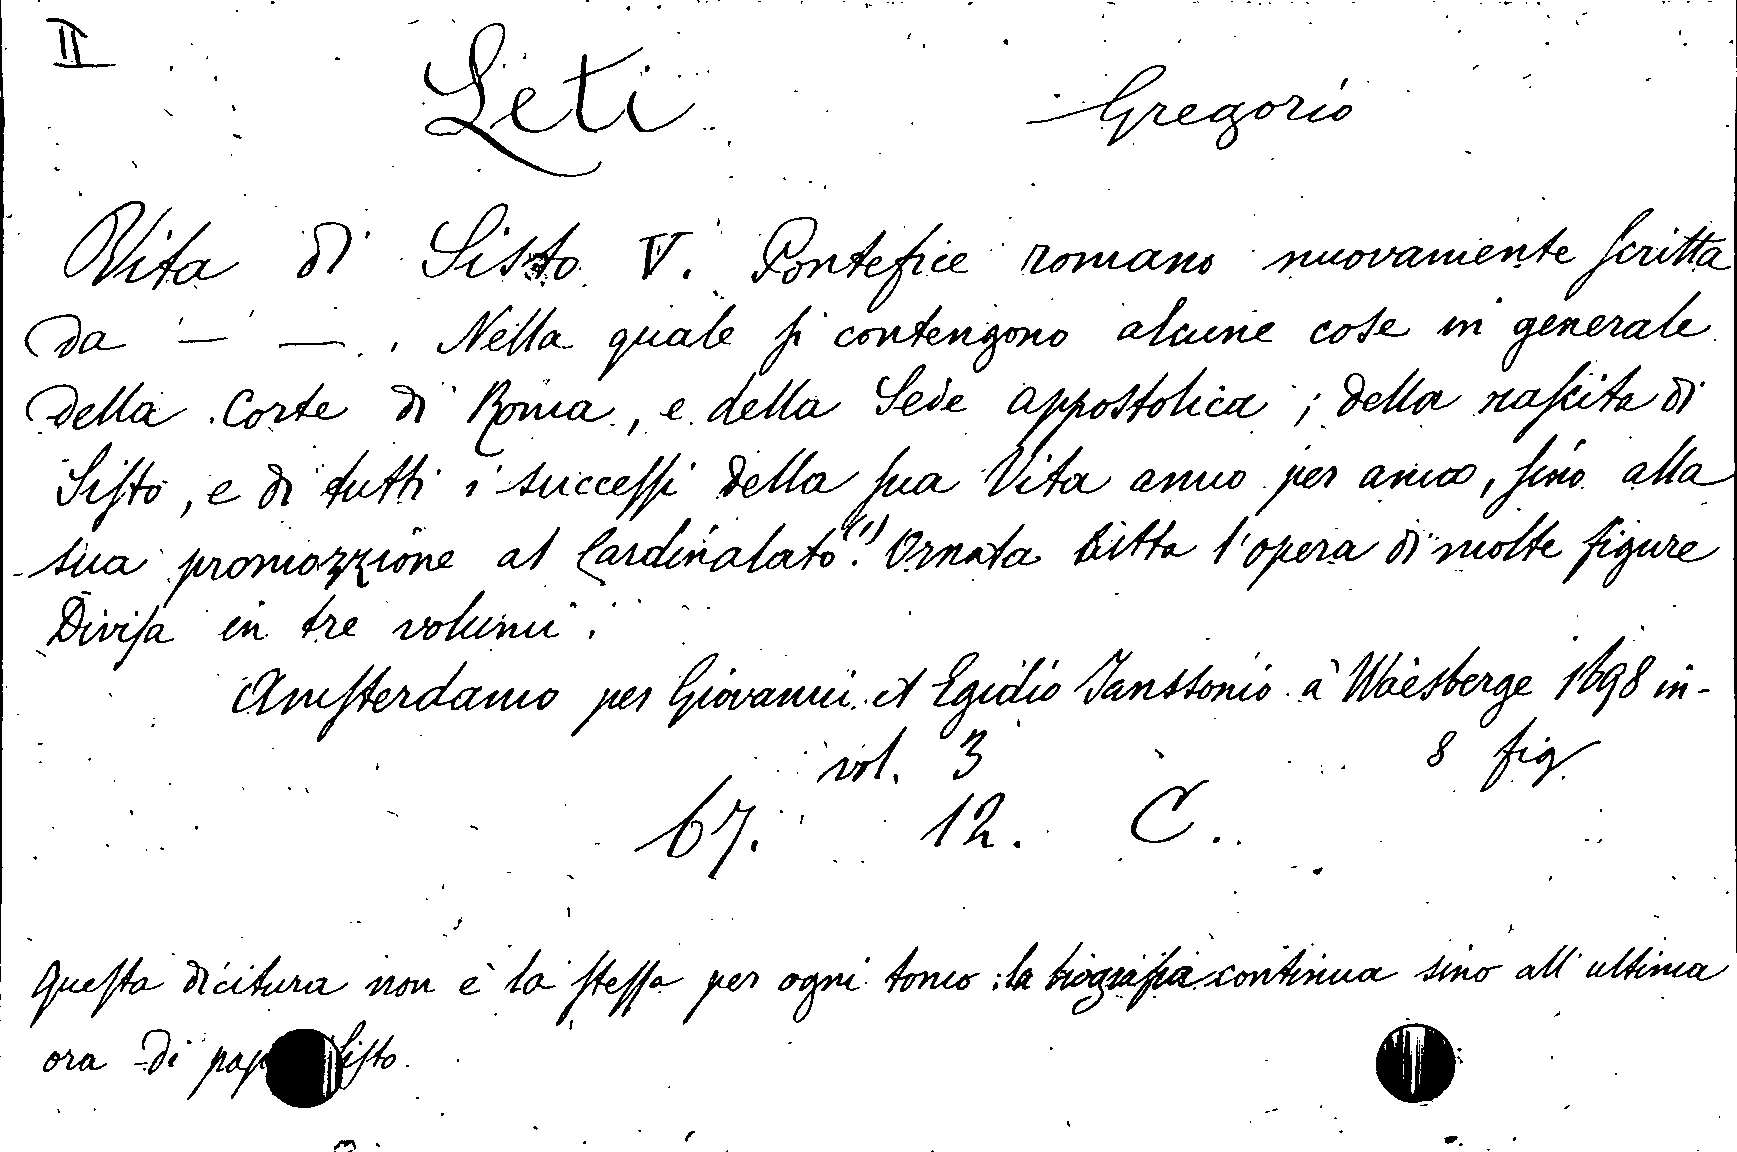 II
Leti Gregorio
Vita di Sisto V. Pontefice romano nuovamente scritta
da — — . Nella quale si contengono alcune cose in generale
della Corte di Roma, e della Sede appostolica ; della nascita di
Sisto, e di tutti i successi della sua Vita anno per anno, sino alla
sua promozzione al Cardinalato.(1) Ornata tutta l'opera di molte figure
Divisa in tre volumi.
Amsterdamo per Giovanni et Egidio Janssonio à Waesberge 1698 in-
vol. 3 8 fig
67. 12. C.
Questa dicitura non è la stessa per ogni tomo : la biografia continua sino all'ultima
ora di Sisto.